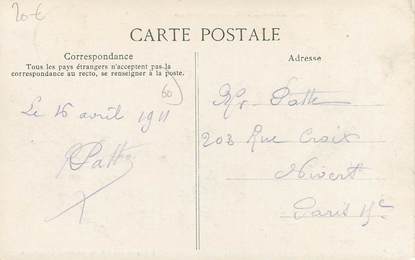 20€
CARTE POSTALE
Correspondance
Tous les pays étrangers n'acceptent pas la
correspondance au recto, se renseigner à la poste.
60
Le 16 avril 1911
Patte
Adresse
Mr Patte
203 Rue Croix
Nivert
Paris 15e